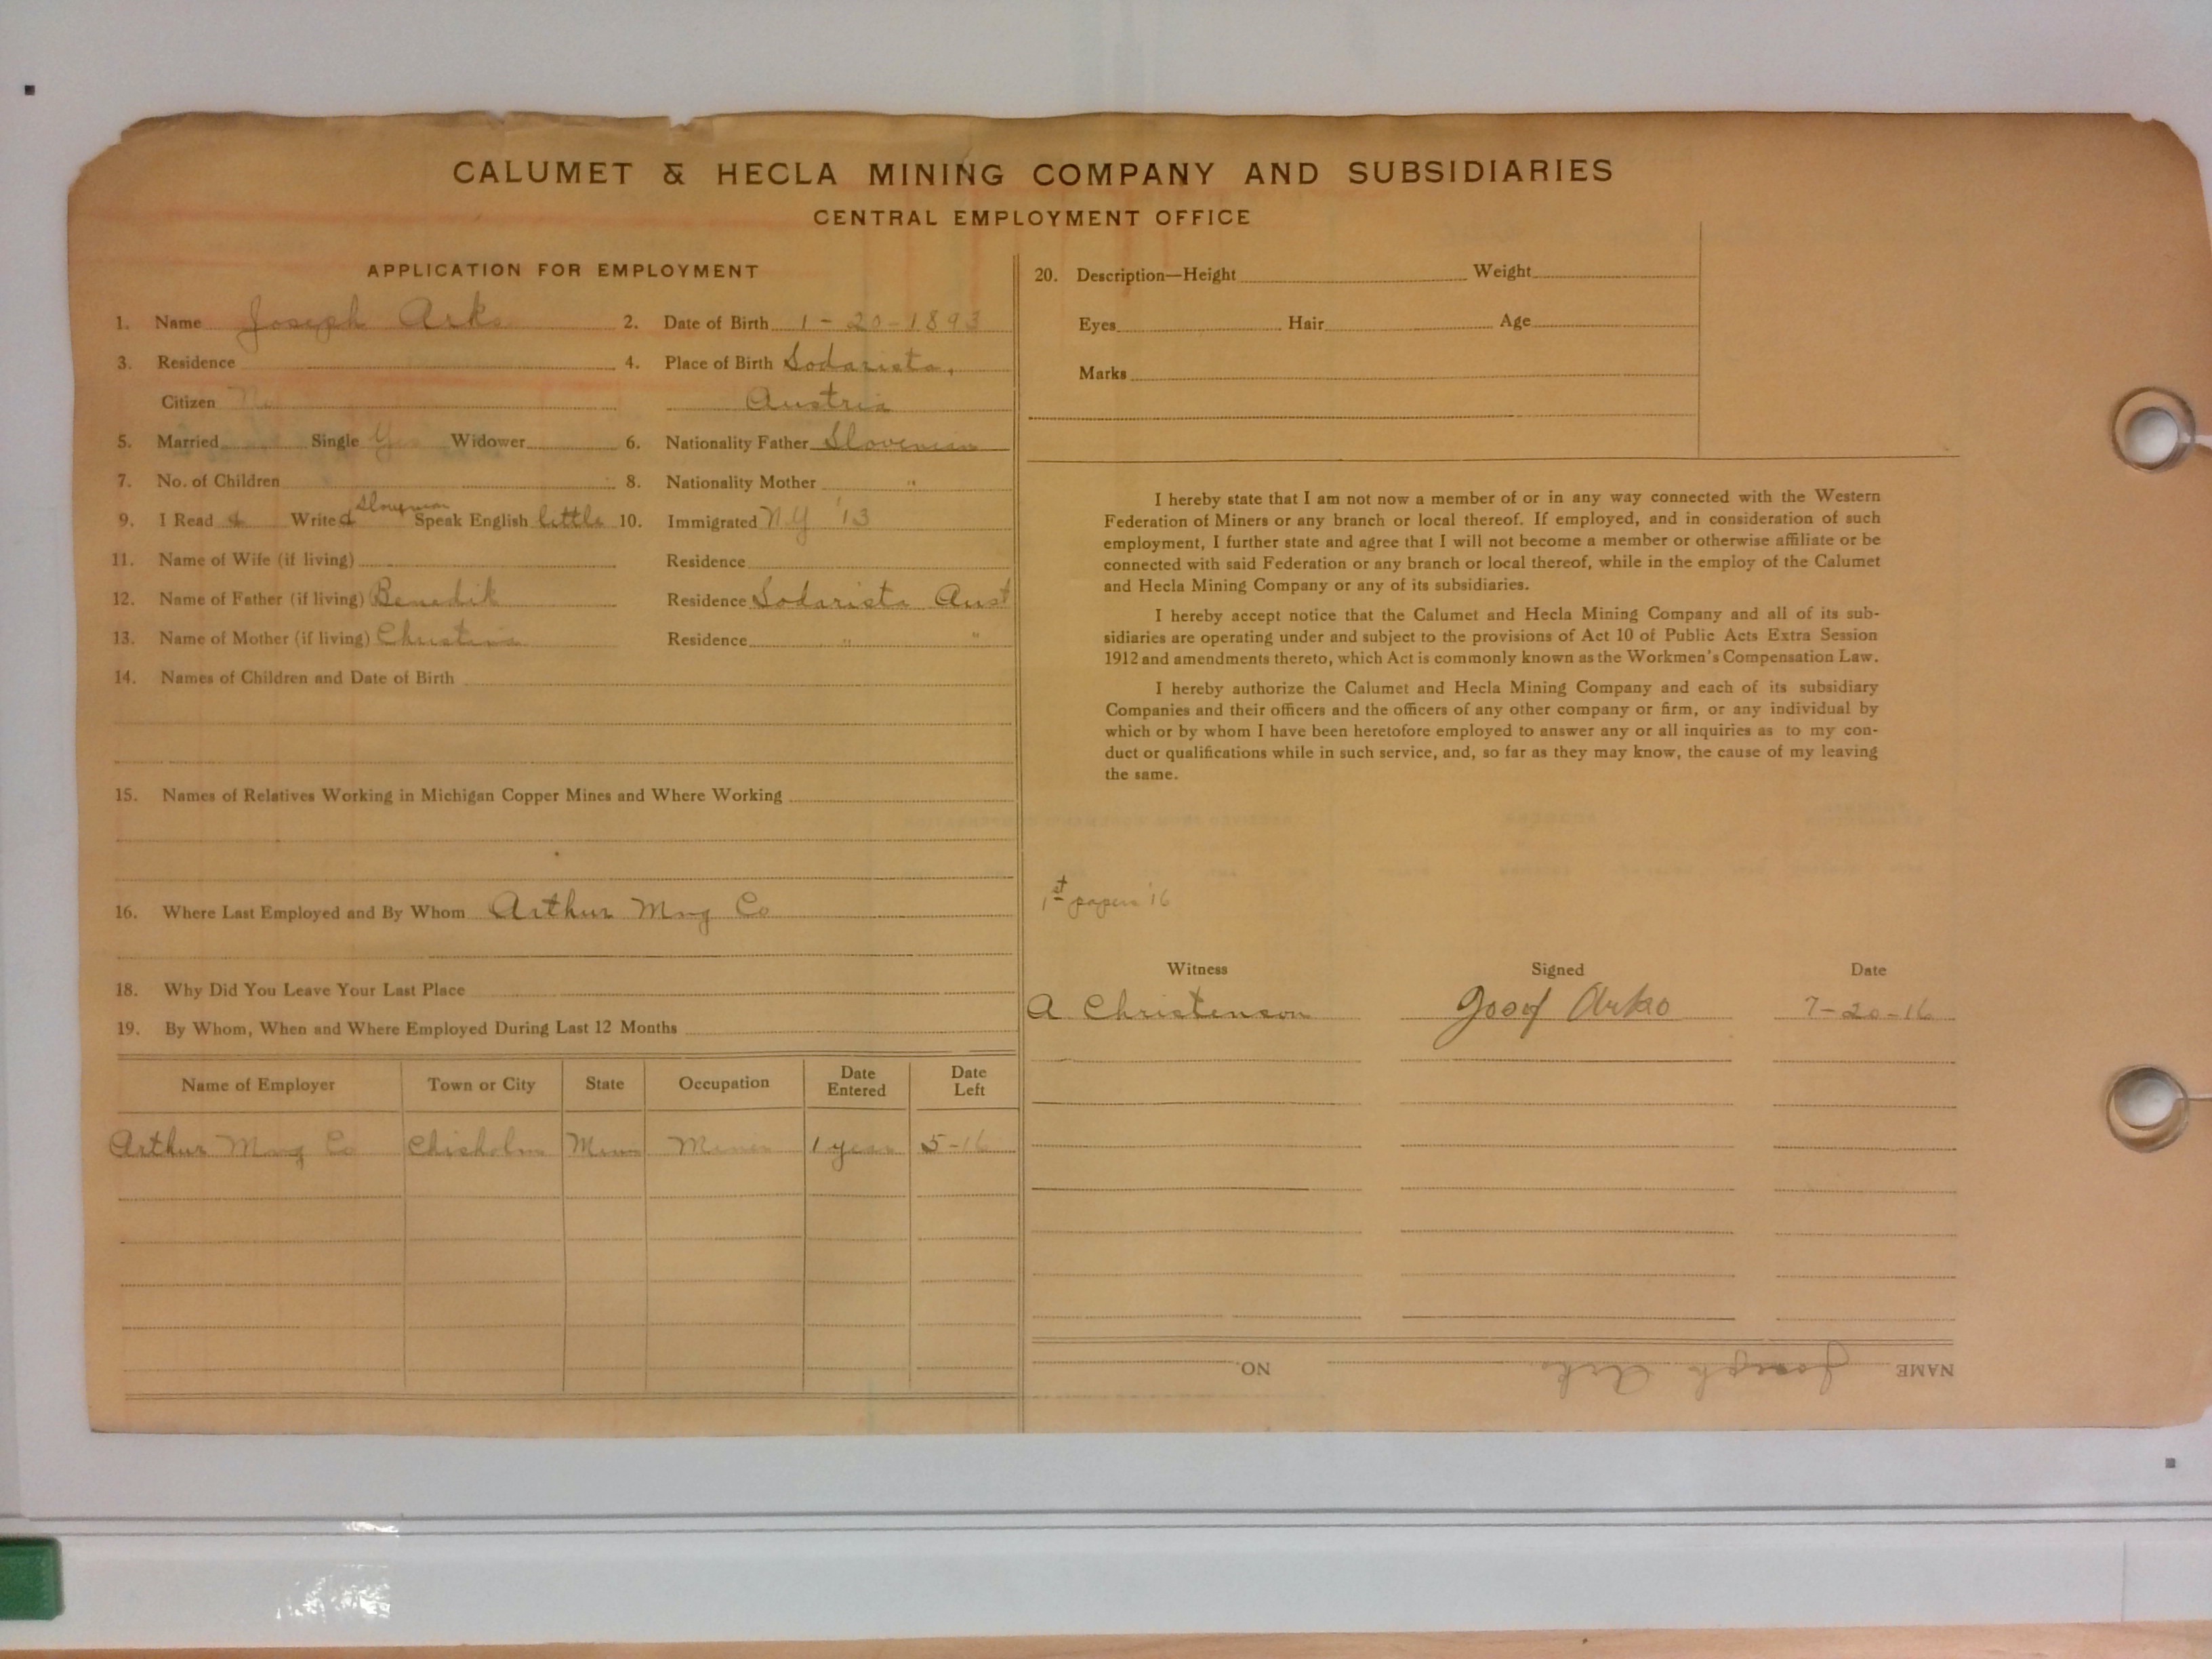 CALUMET & HECLA MINING COMPANY AND SUBSIDIARIES
CENTRAL EMPLOYMENT OFFICE
APPLICATION FOR EMPLOYMENT
1. Name Joseph Arko 2. Date of Birth 1-20-1893
3. Residence 4. Place of Birth Sodarista,
Citizen No Austria
5. Married Single Yes Widower 6. Nationality Father Slovenian
7. No. of Children 8. Nationality Mother "
9. I Read & Write Slovenian Speak English little 10. Immigrated NY '13
11. Name of Wife (if living) Residence
12. Name of Father (if living) Benedik Residence Sodarista Aust
13. Name of Mother (if living) Christina Residence " "
14. Names of Children and Date of Birth
15. Names of Relatives Working in Michigan Copper Mines and Where Working
16. Where Last Employed and By Whom Arthur Mng Co
18. Why Did You Leave Your Last Place
19. By Whom, When and Where Employed During Last 12 Months
Name of Employer Town or City State Occupation Date Entered Date Left
Arthur Mng Co Chisholm Minn Miner 1 year 5-16
20. Description—Height Weight
Eyes Hair Age
Marks
I hereby state that I am not now a member of or in any way connected with the Western
Federation of Miners or any branch or local thereof. If employed, and in consideration of such
employment, I further state and agree that I will not become a member or otherwise affiliate or be
connected with said Federation or any branch or local thereof, while in the employ of the Calumet
and Hecla Mining Company or any of its subsidiaries.
I hereby accept notice that the Calumet and Hecla Mining Company and all of its sub-
sidiaries are operating under and subject to the provisions of Act 10 of Public Acts Extra Session
1912 and amendments thereto, which Act is commonly known as the Workmen's Compensation Law.
I hereby authorize the Calumet and Hecla Mining Company and each of its subsidiary
Companies and their officers and the officers of any other company or firm, or any individual by
which or by whom I have been heretofore employed to answer any or all inquiries as to my con-
duct or qualifications while in such service, and, so far as they may know, the cause of my leaving
the same.
1st papers '16
Witness Signed Date
A Christenson Josef Arko 7-20-16
NAME Joseph Arko NO.